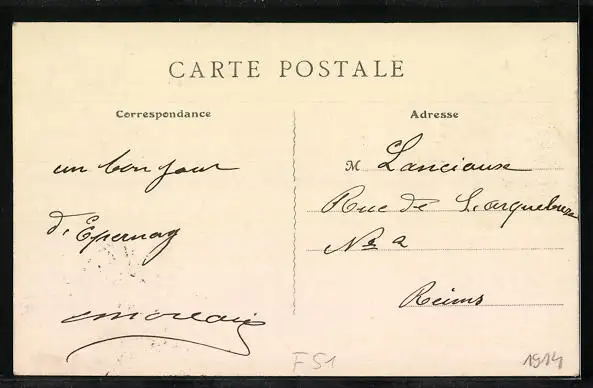 CARTE POSTALE
Correspondance
un bon jour
d'Epernay
Adresse
M Lanciaux
Rue de L'arquebuse
No 2
Reims
F51
1914